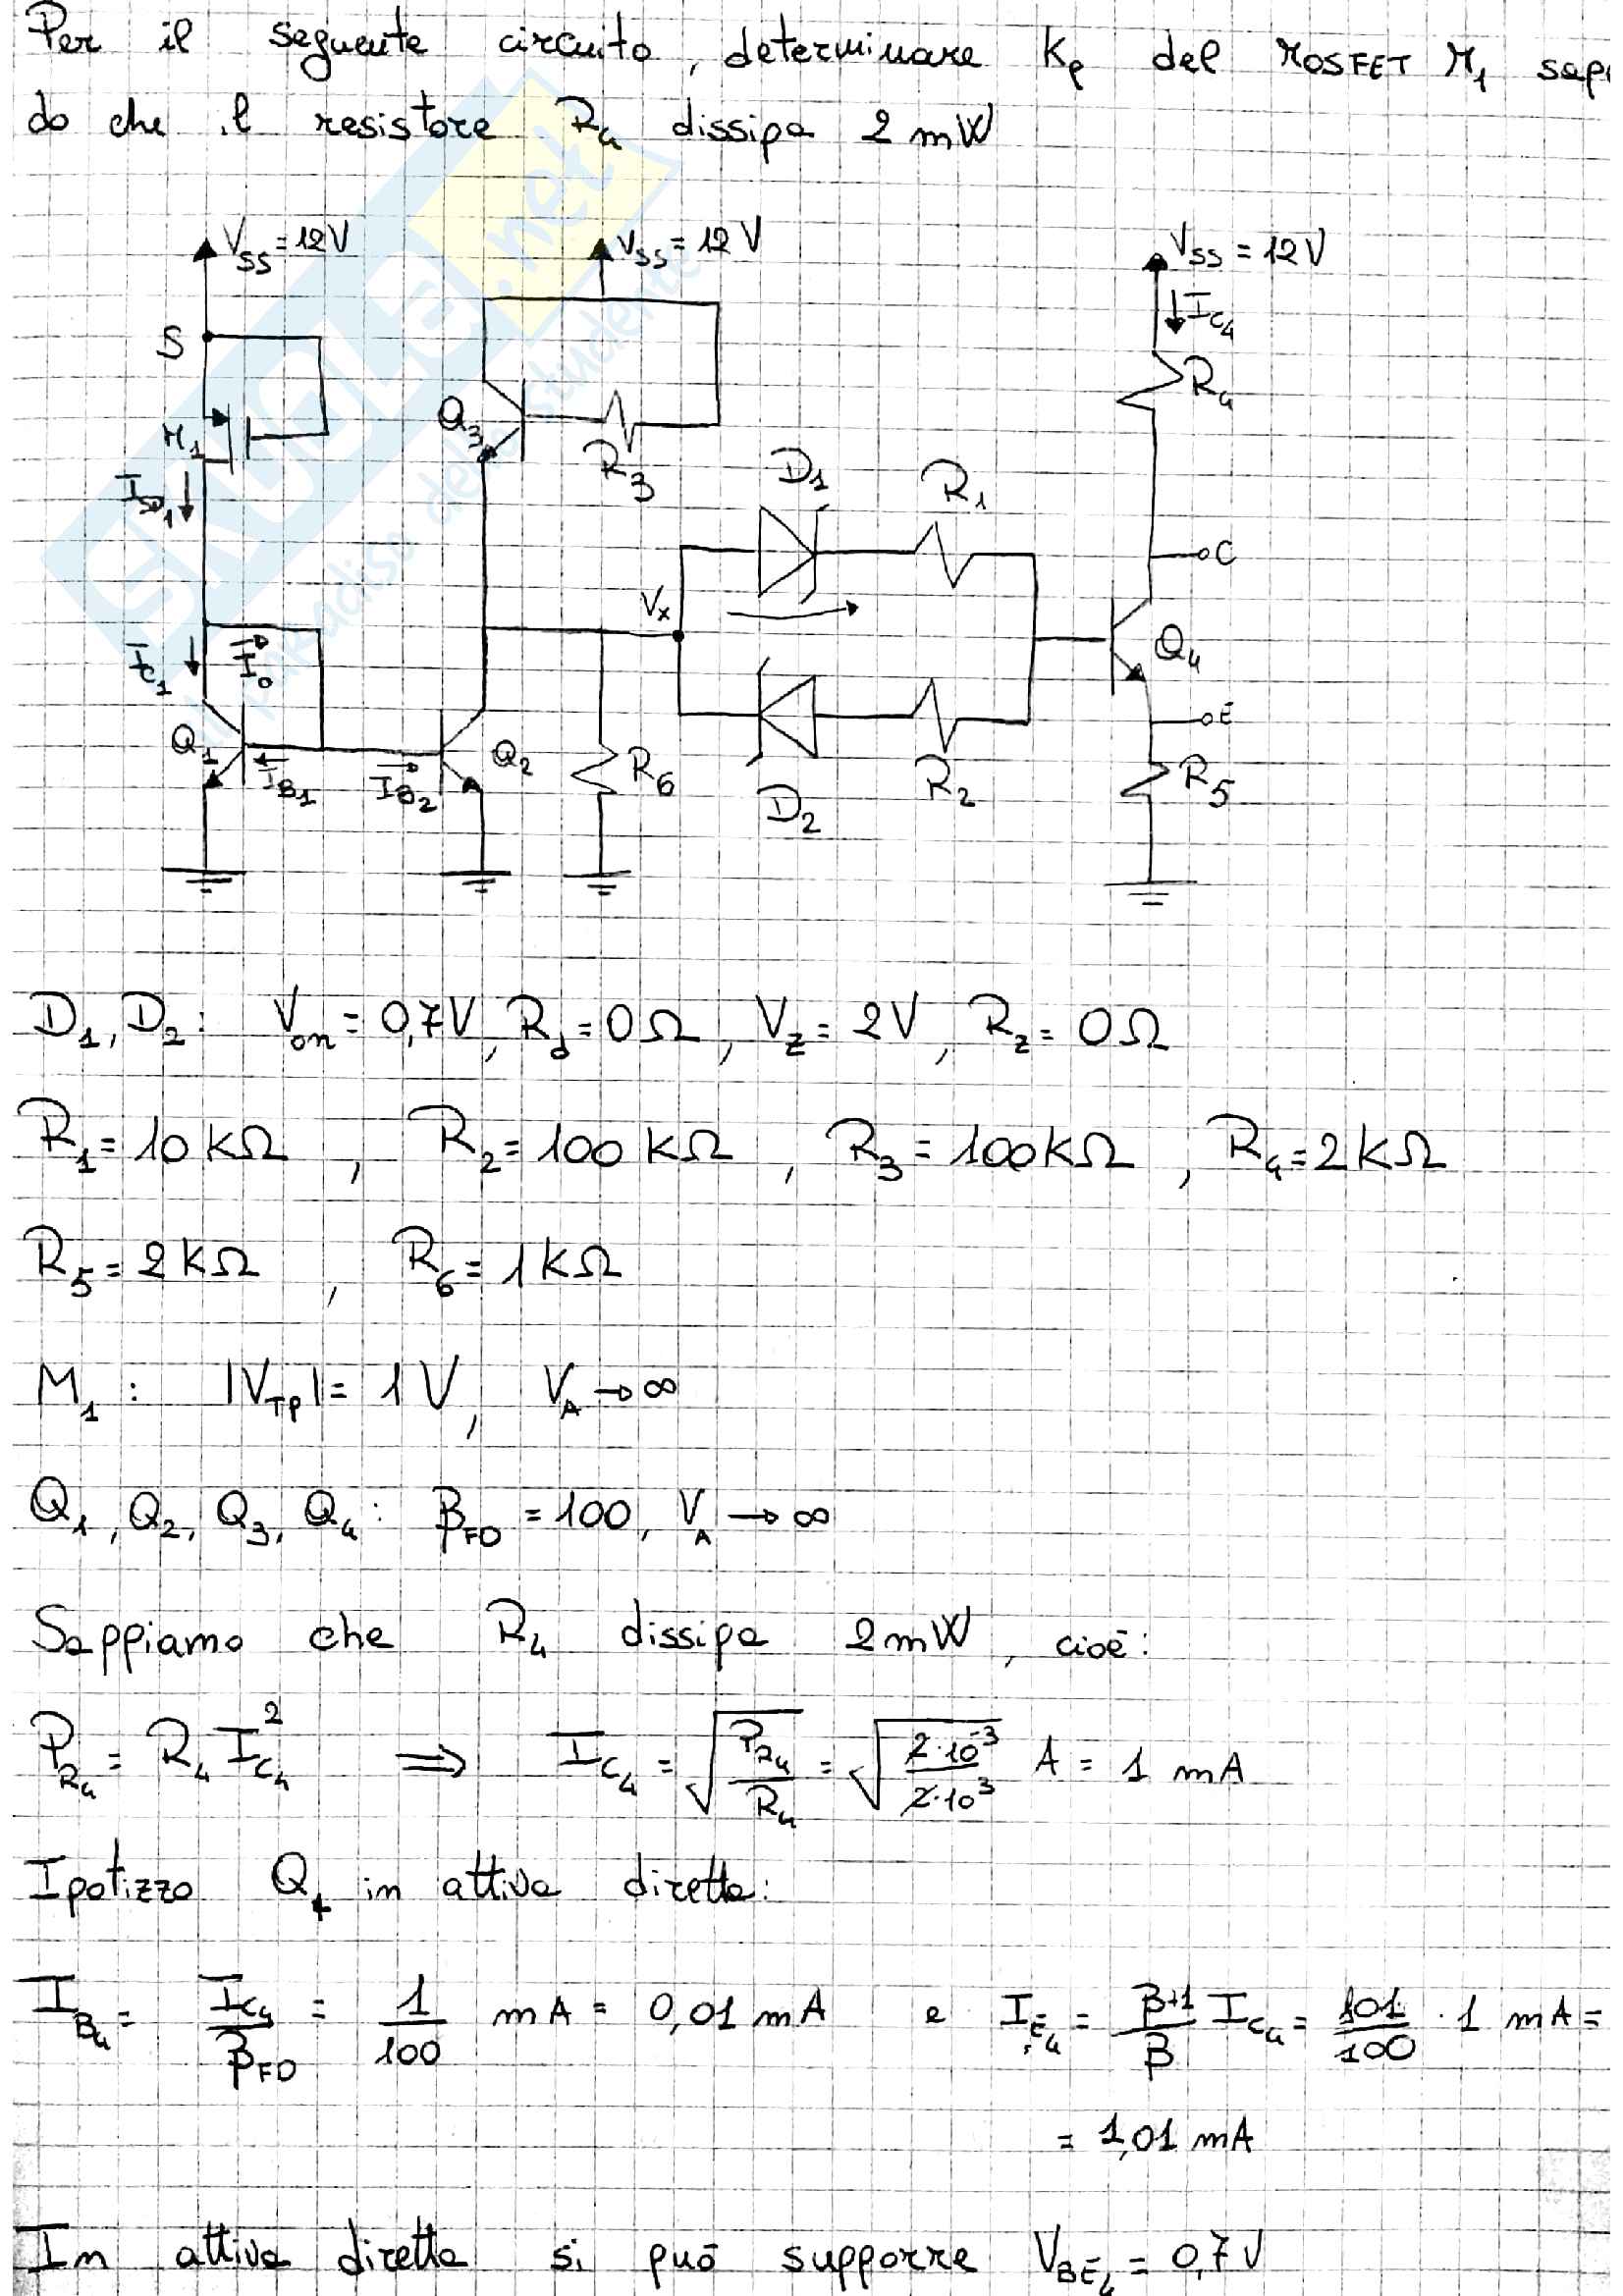 Per il seguente circuito, determinare Kp del MOSFET M1 sapen
do che il resistore R4 dissipa 2 mW
VSS = 12V
VSS = 12V
VSS = 12V
S
IC4
R4
M1
Q3
R3
ISD1
D1
R1
C
Vx
IC1
I0
Q4
E
Q1
IB1
IB2
Q2
R6
D2
R2
R5
SKUOLA.net
il paradiso dello studente
D1, D2: Von = 0,7V, Rd = 0Ω, Vz = 2V, Rz = 0Ω
R1 = 10 KΩ, R2 = 100 KΩ, R3 = 100KΩ, R4 = 2KΩ
R5 = 2KΩ, R6 = 1KΩ
M1: |VTP| = 1V, VA → ∞
Q1, Q2, Q3, Q4: βFO = 100, VA → ∞
Sappiamo che R4 dissipa 2mW, cioè:
PR4 = R4 IC4² ⟹ IC4 = √(PR4/R4) = √(2·10⁻³/2·10³) A = 1 mA
Ipotizzo Q4 in attiva diretta:
IB4 = IC4/βFO = 1/100 mA = 0,01 mA e IE4 = β+1/β IC4 = 101/100 · 1 mA =
= 1,01 mA
In attiva diretta si può supporre VBE4 = 0,7V